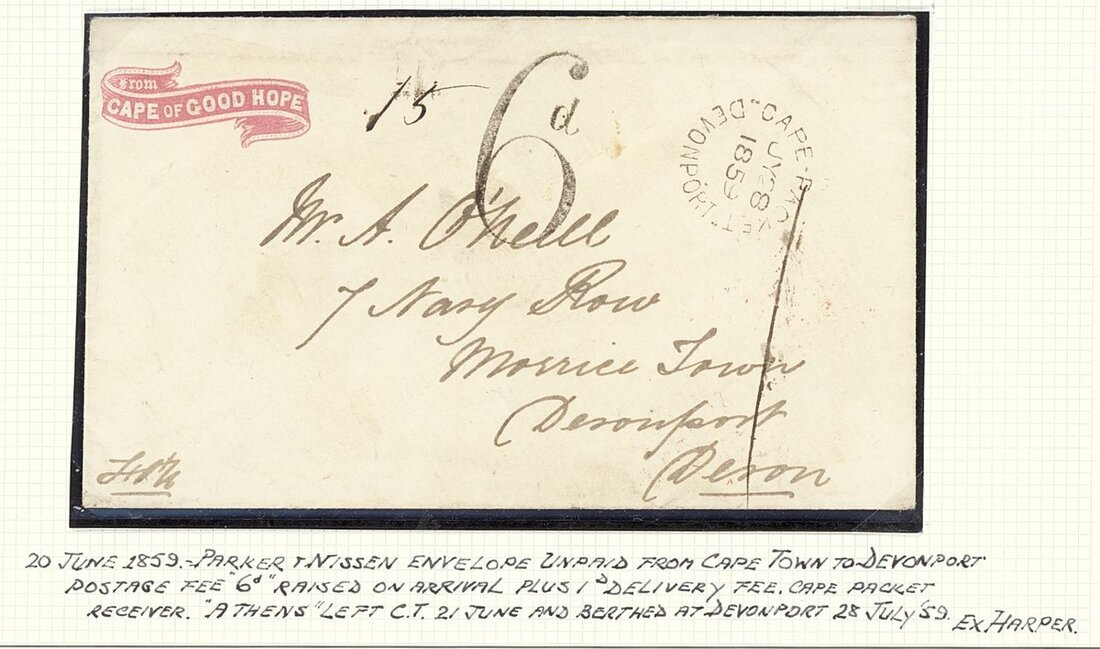 From
CAPE OF GOOD HOPE
15
6d
DEVONPORT. CAPE-PACKET
JY 28
1859
Mr. A. O'Neill
7 Navy Row
Morrice Town
Devonport
Devon
20 JUNE 1859.-PARKER & NISSEN ENVELOPE UNPAID FROM CAPE TOWN TO DEVONPORT
POSTAGE FEE "6d" RAISED ON ARRIVAL PLUS 1D DELIVERY FEE. CAPE PACKET
RECEIVER. "ATHENS" LEFT C.T. 21 JUNE AND BERTHED AT DEVONPORT 28 JULY '59.
EX HARPER.